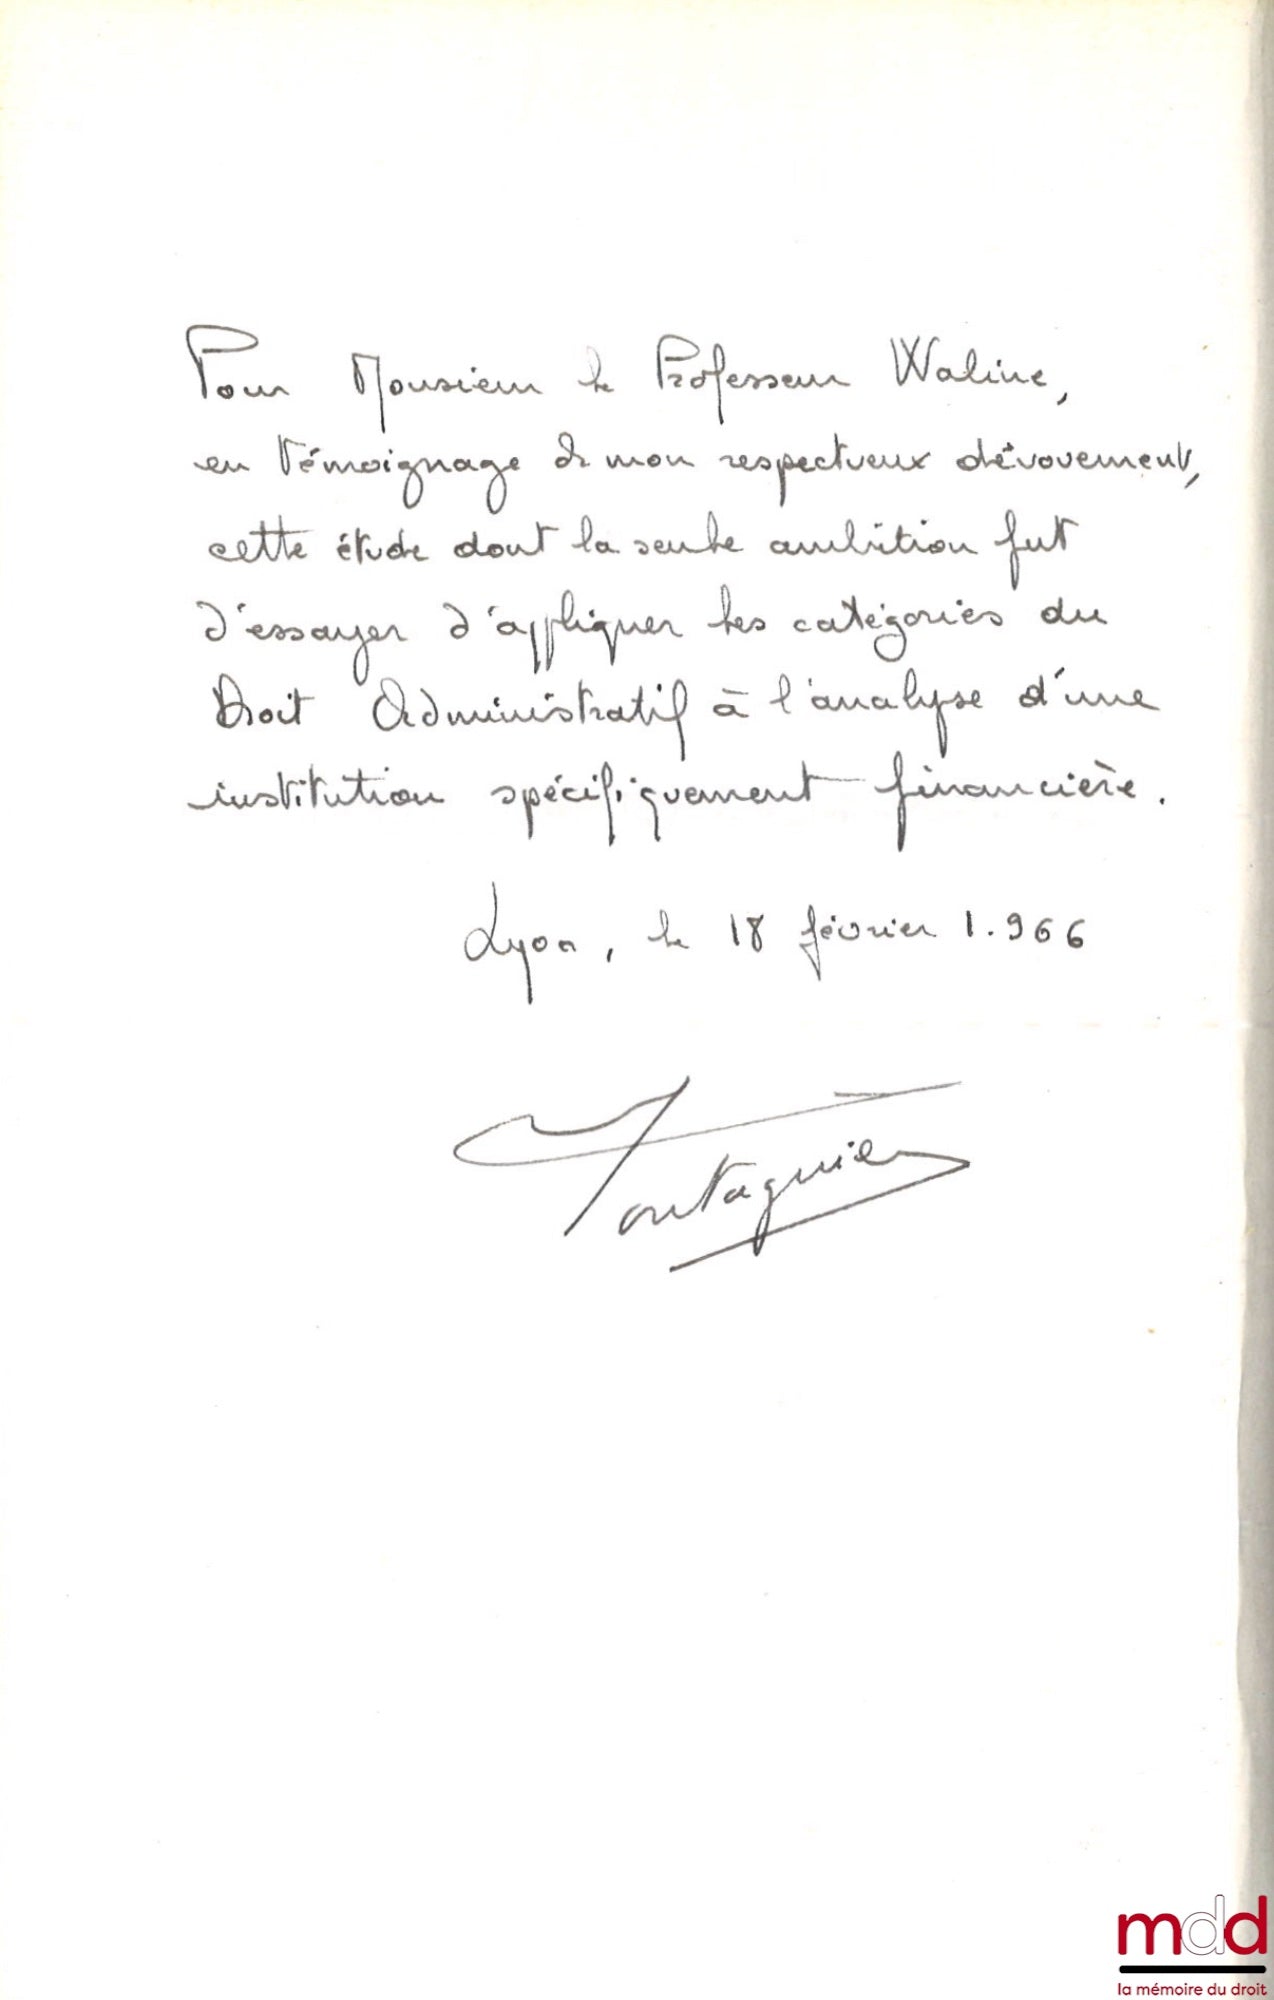 Pour Monsieur le Professeur Waline,
en témoignage de mon respectueux dévouement,
cette étude dont la seule ambition fut
d'essayer d'appliquer les catégories du
Droit Administratif à l'analyse d'une
institution spécifiquement financière.
Lyon, le 18 février 1.966
mdd
la mémoire du droit